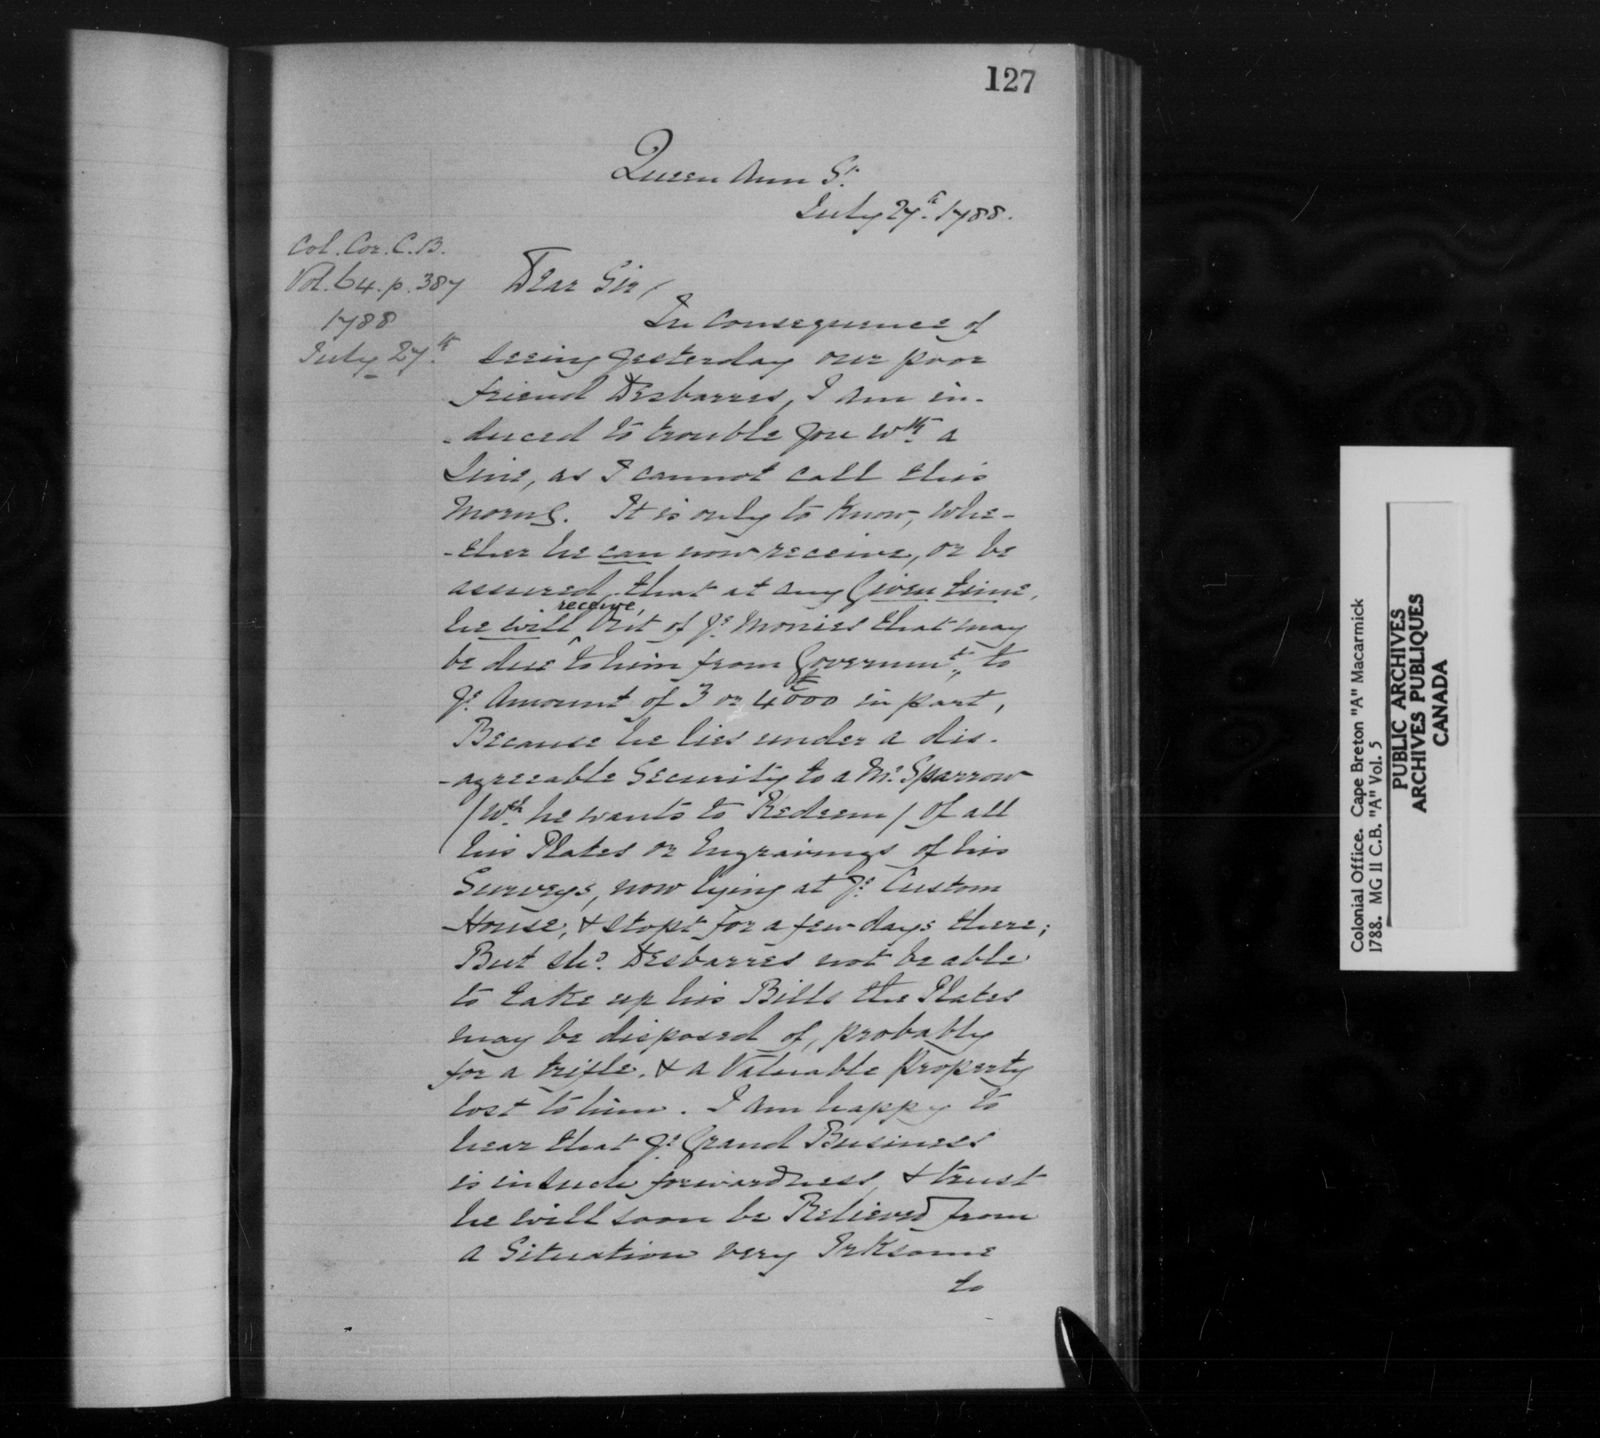 127
Queen Ann St.
July 27th. 1788.
Col. Cor. C.B.
Vol. 64. p. 387
1788
July 27th
Dear Sir,
In Consequence of
seeing yesterday our poor
friend Desbarres, I am in-
-duced to trouble you wth. a
Line, as I cannot call this
Morng. It is only to know, whe-
-ther he can now receive, or be
assured, that at any Given time,
he will receive, Out of ye. Monies that may
be due to him from Governmt., to
ye. Amount of 3 or 4000£ in part,
Because he lies under a dis-
-agreeable Security to a Mr. Sparrow
(Wch. he wants to Redeem) Of all
his Plates or Engravings of his
Surveys, now lying at ye. Custom
House, & stopt for a few days there;
But shd. Desbarres not be able
to take up his Bills the Plates
may be disposed of, probably
for a trifle, & a Valuable Property
lost to him. I am happy to
hear that ye. Grand Business
is in such forwardness, & trust
he will soon be Relieved from
a Situation very Irksome
to
Colonial Office. Cape Breton "A" Macarmick
1788. MG II C.B. "A" Vol. 5
PUBLIC ARCHIVES
ARCHIVES PUBLIQUES
CANADA